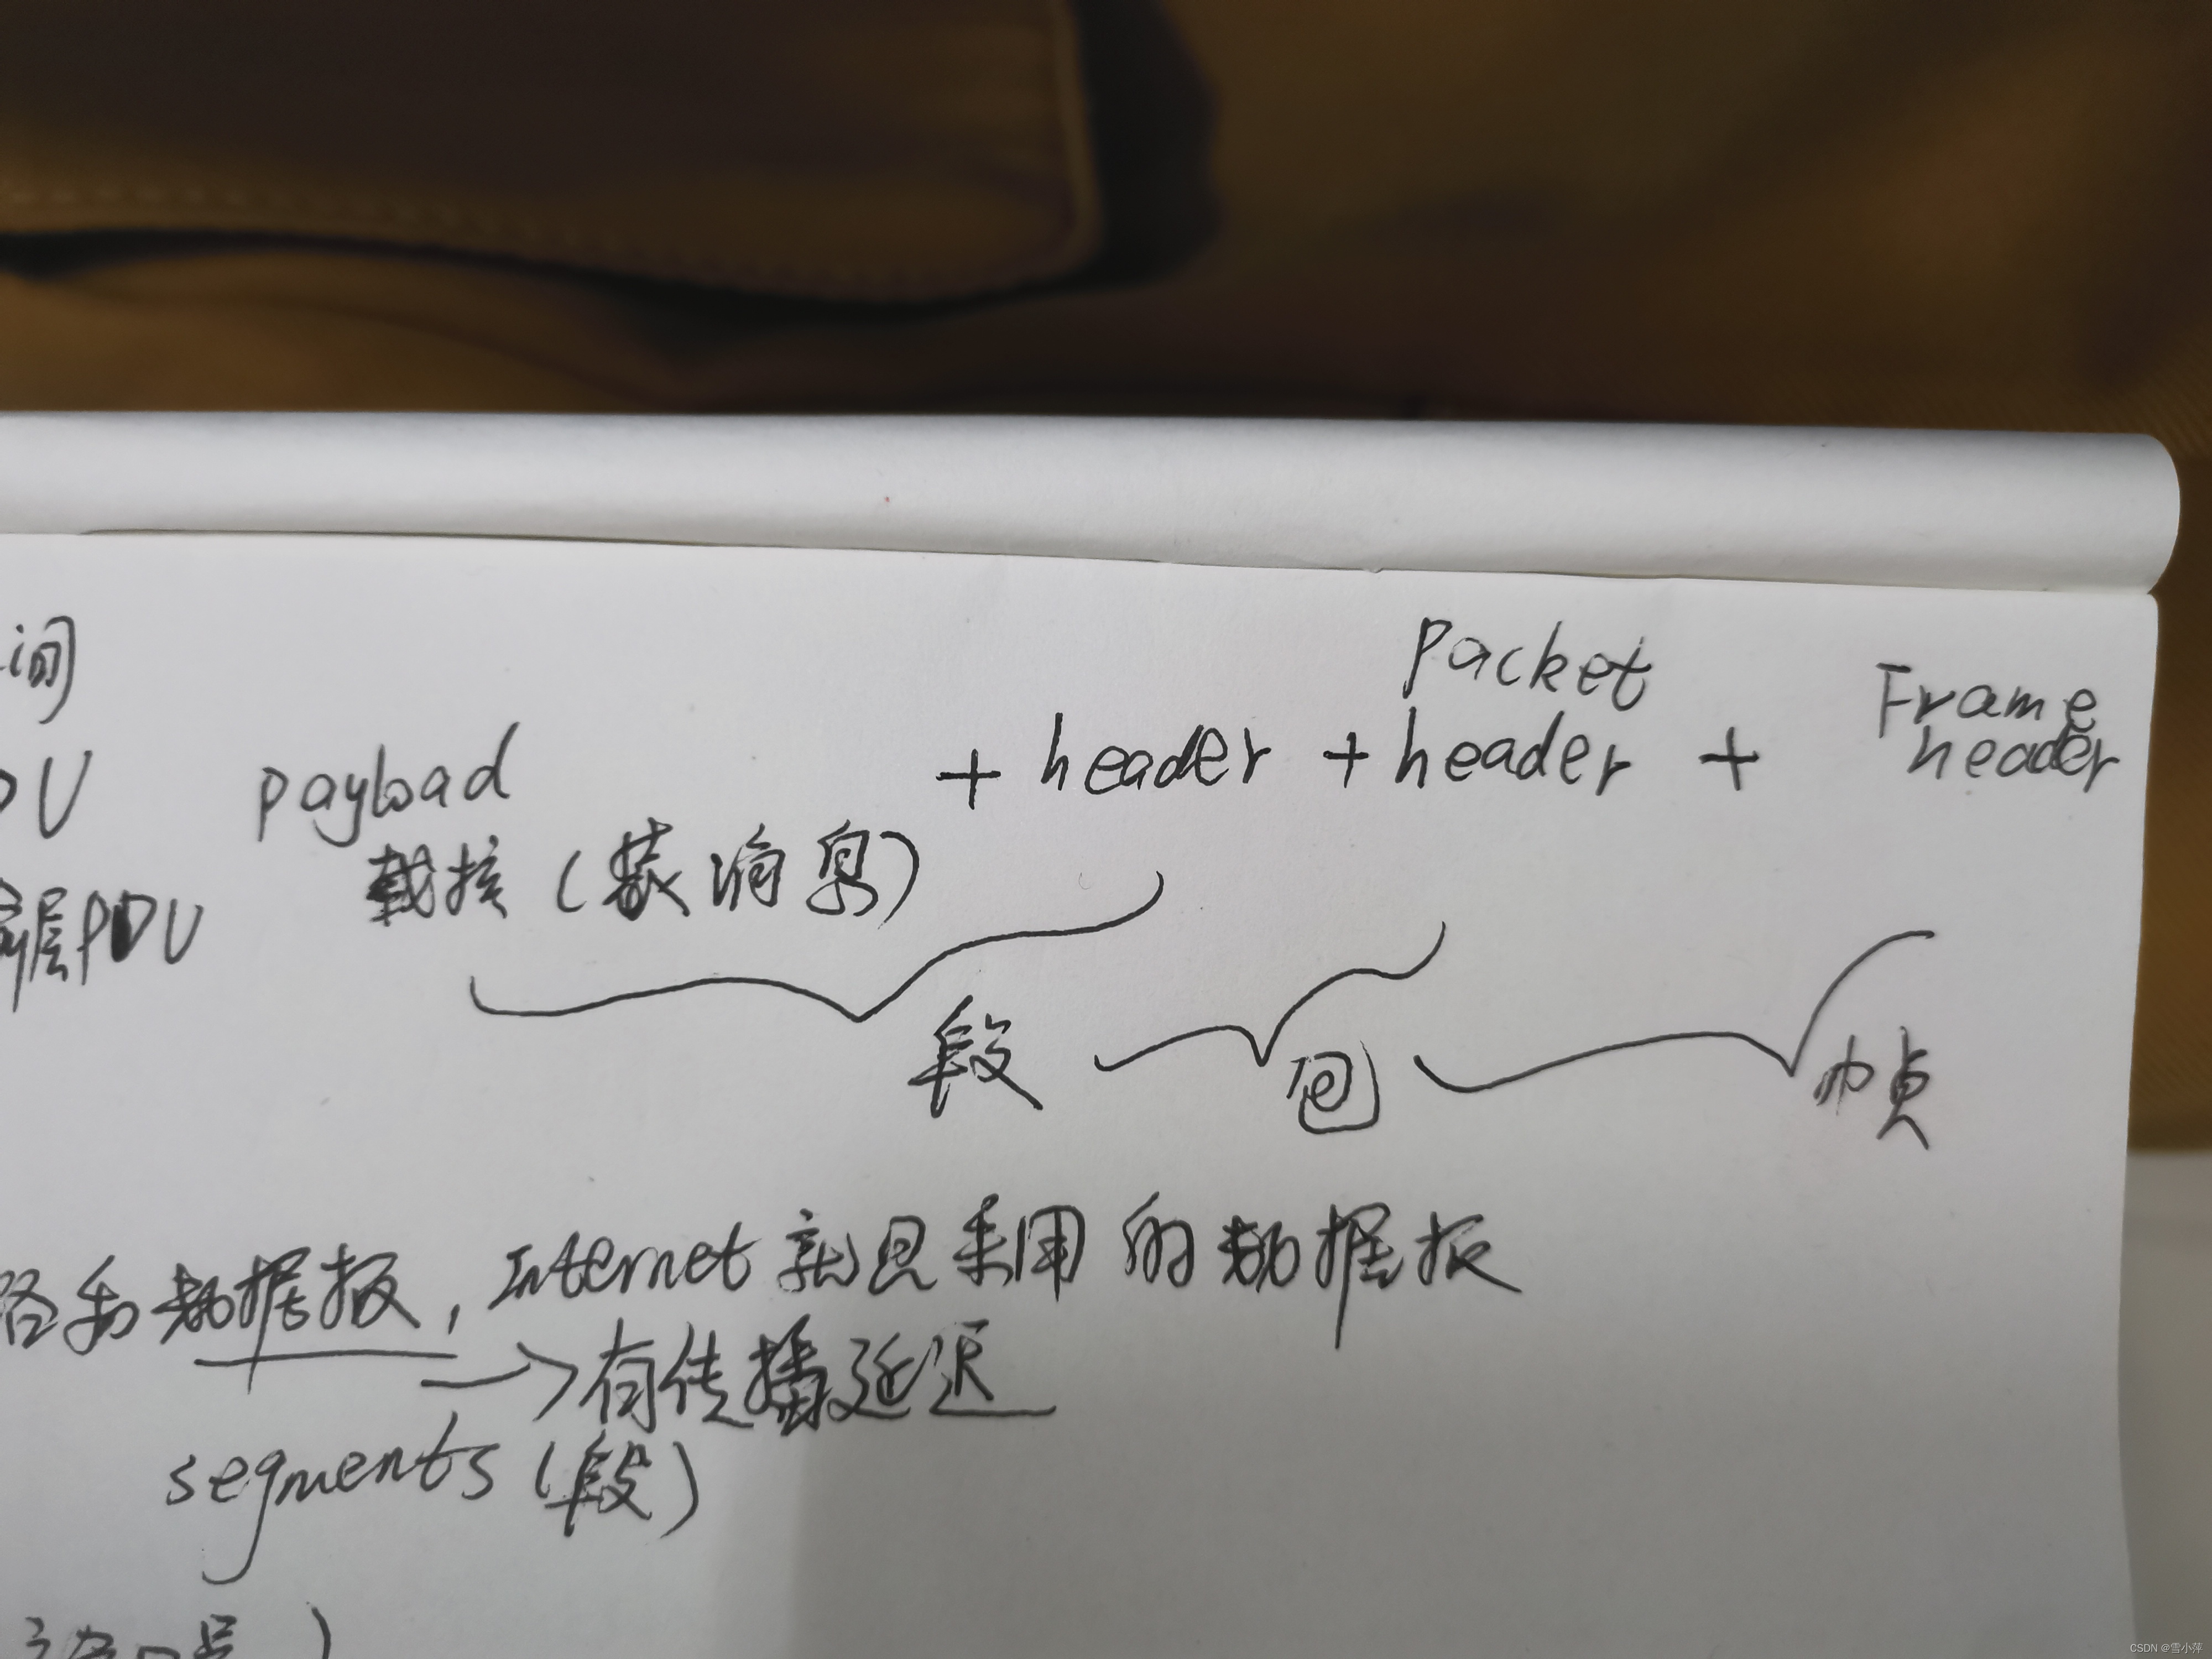 间
packet
Frame
DU payload + header + header + header
载核（装消息）
层PDU
段 包 帧
络和数据报，Internet就是采用的数据报
→有传播延迟
segments（段）
口号）
CSDN @雪小萍